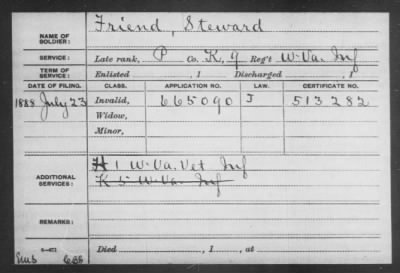 NAME OF SOLDIER: Friend, Steward
SERVICE: Late rank, P Co. K, 9 Reg't W. Va. Inf
TERM OF SERVICE: Enlisted , 1 Discharged , 1
DATE OF FILING. CLASS. APPLICATION NO. LAW. CERTIFICATE NO.
1888 July 23 Invalid, 665090 J 513282
Widow,
Minor,
ADDITIONAL SERVICES: H 1 W. Va. Vet Inf
K 5 W. Va. Inf
REMARKS:
Died , 1 , at